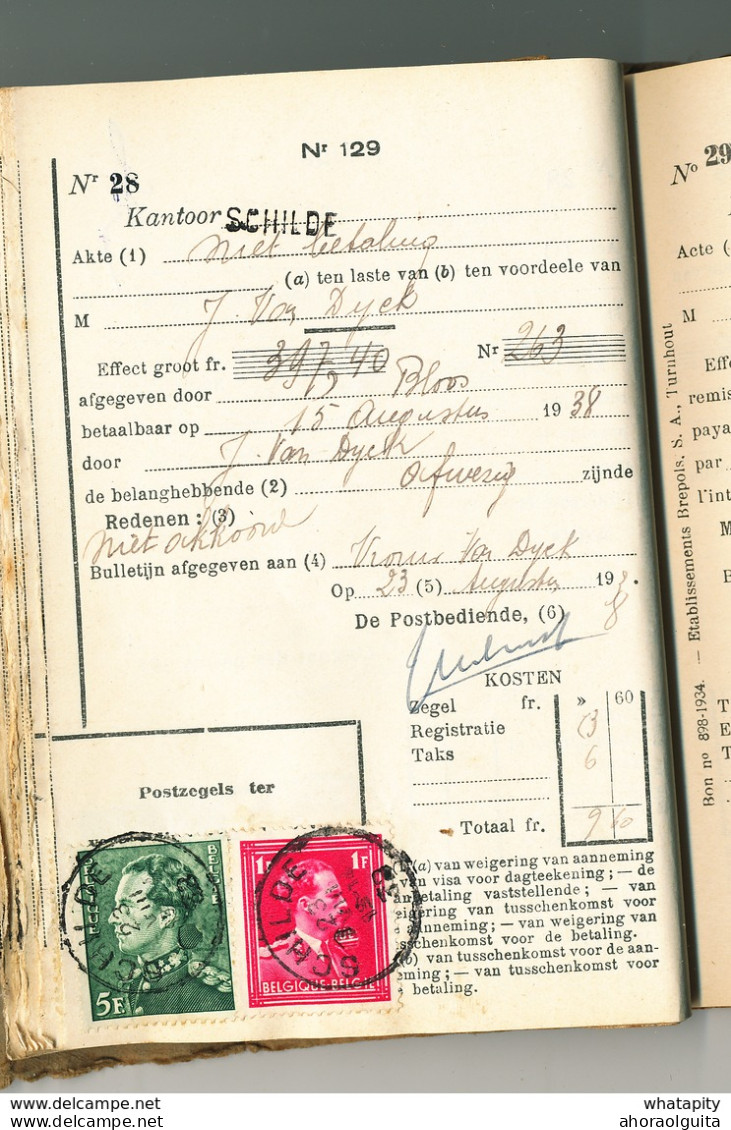 Nr 129
Nr 28
Kantoor SCHILDE
Akte (1) Niet betaling
(a) ten laste van (b) ten voordeele van
M J. Van Dyck
Effect groot fr. 397,40 Nr 263
afgegeven door Bloos
betaalbaar op 15 Augustus 1938
door J. Van Dyck
de belanghebbende (2) afwezig zijnde
Redenen : (3)
Niet akkoord
Bulletijn afgegeven aan (4) Vrouw Van Dyck
Op 23 (5) Augustus 193 8
De Postbediende, (6)
KOSTEN
Zegel fr. » 60
Registratie 3
Taks 6
Totaal fr. 9 60
Postzegels ter
(a) van weigering van aanneming
van visa voor dagteekening; — de
betaling vaststellende; — van
weigering van tusschenkomst voor
de aanneming; — van weigering van
tusschenkomst voor de betaling.
(b) van tusschenkomst voor de aan-
neming; — van tusschenkomst voor
de betaling.
BELGIE
5F
1F 1F
BELGIQUE·BELGIE
SCHILDE
SCHILDE
No 29
Acte (
M
Effe
remis
paya
par
l'int
M
B
T
E
T
Bon no 898-1934. — Etablissements Brepols, S. A., Turnhout
whatapity
ahoraolguita